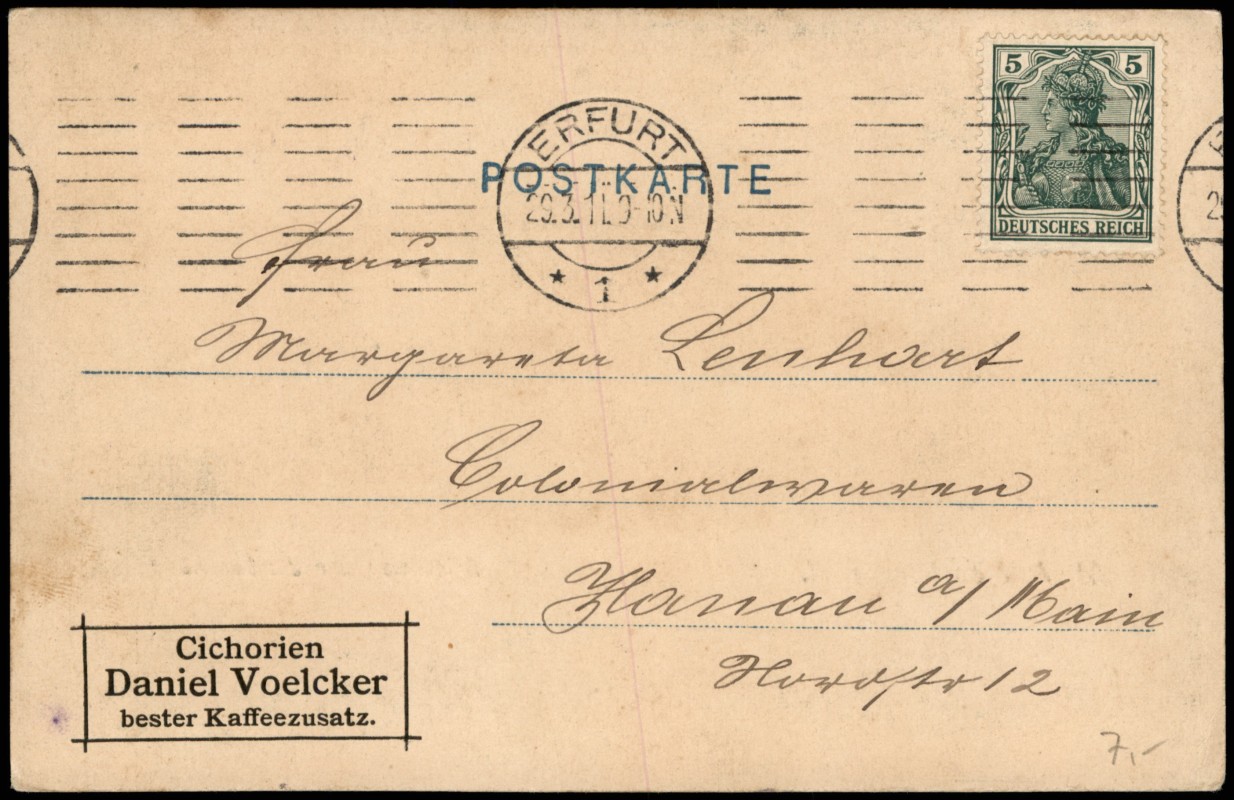 5 5
DEUTSCHES REICH
ERFURT
POSTKARTE
29.3.11.9-10N
* 1 *
Frau
Margareta Lenhart
Colonialwaren
Hanau a/Main
Nordstr 12
Cichorien
Daniel Voelcker
bester Kaffeezusatz.
7,-